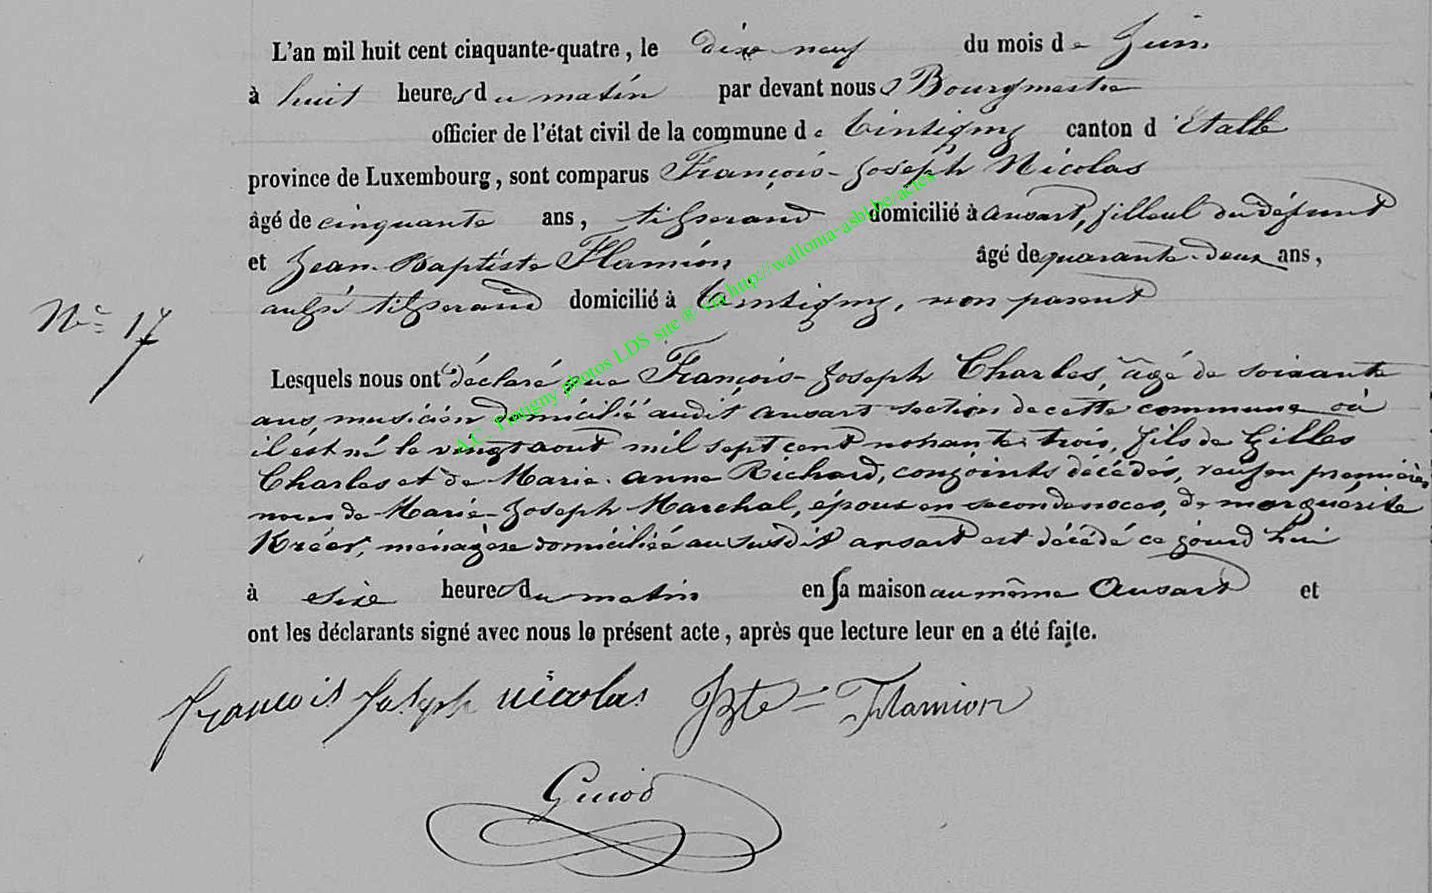 L'an mil huit cent cinquante-quatre, le dixe neuf du mois de Juin
à huit heures du matin par devant nous Bourgmestre
officier de l'état civil de la commune de Tintigny canton d'Etalle
province de Luxembourg, sont comparus François-Joseph Nicolas
âgé de cinquante ans, tisserand domicilié à ansart, filleul du défunt
et Jean-Baptiste Flamion âgé de quarante-deux ans,
aussi tisserand domicilié à Tintigny, non parent
N° 17
Lesquels nous ont déclaré que François-Joseph Charles, âgé de soixante
ans, musicien domicilié audit ansart section de cette commune où
il est né le vingt aout mil sept cent nonante trois, fils de Gilles
Charles et de Marie-anne Richard, conjoints décédés, veuf en premières
noces de Marie-Joseph Marchal, époux en seconde noces, de marguerite
Kréer, ménagère domiciliée au susdit ansart est décédé ce jourd'hui
à sixe heures du matin en sa maison au même Ansart et
ont les déclarants signé avec nous le présent acte, après que lecture leur en a été faite.
françois Joseph nicolas JBte Flamion
Guiod
A.C. Tintigny photos LDS site ® via http://wallonia-asbl.be/actes